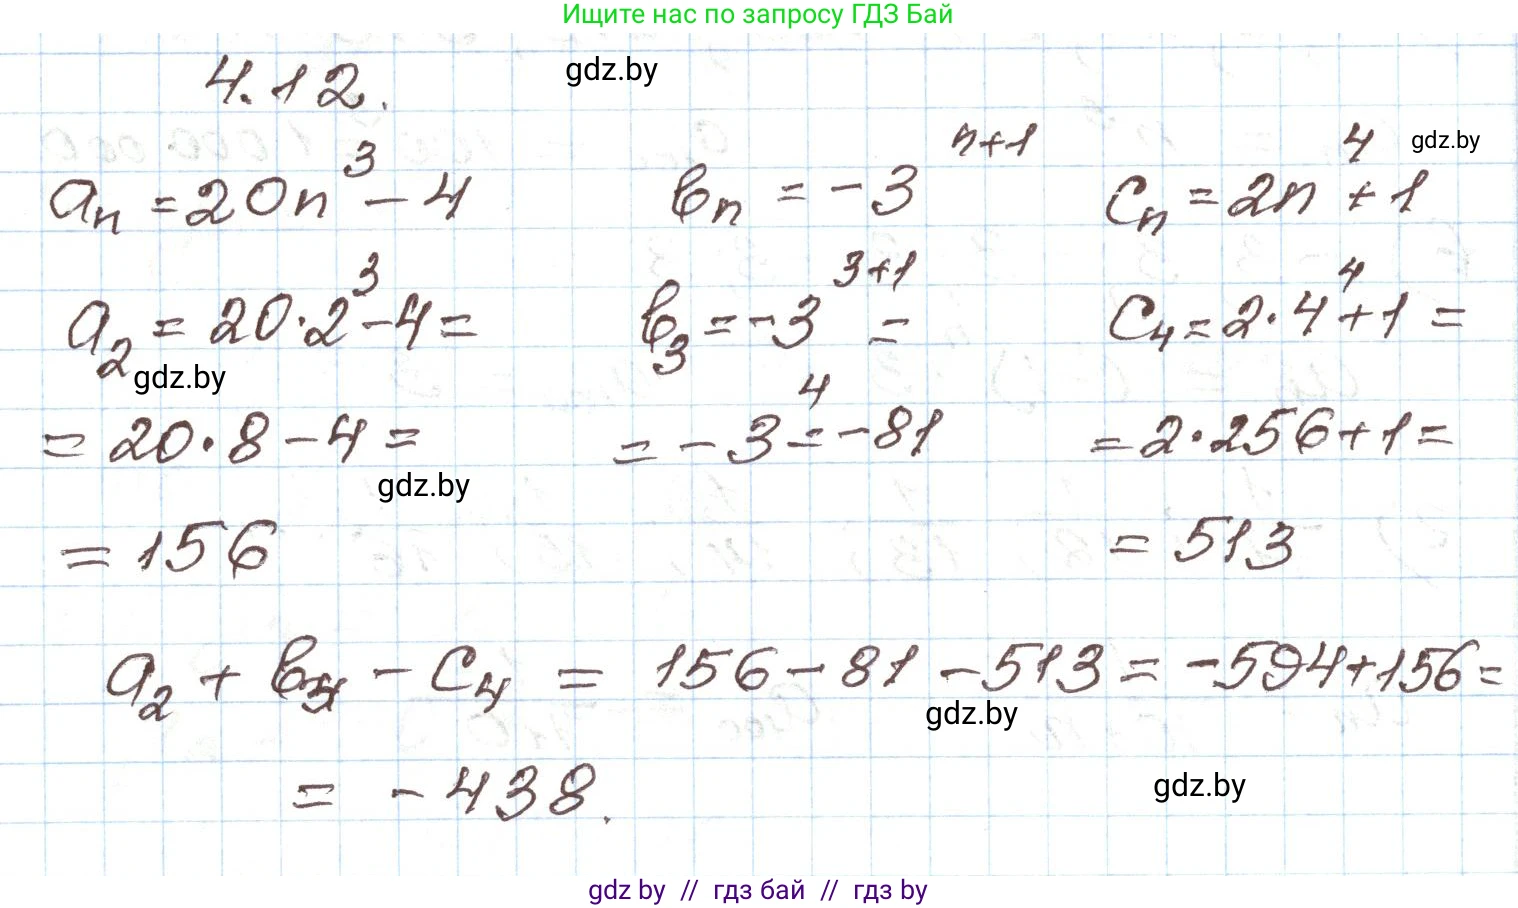 Ищите нас по запросу ГДЗ Бай
4.12.
gdz.by
aₙ = 20n³ - 4
bₙ = -3ⁿ⁺¹
cₙ = 2n⁴ + 1
gdz.by
a₂ = 20·2³ - 4 =
b₃ = -3³⁺¹ =
c₄ = 2·4⁴ + 1 =
gdz.by
= 20·8 - 4 =
= -3⁴ = -81
= 2·256 + 1 =
gdz.by
= 156
= 513
a₂ + b₃ - c₄ = 156 - 81 - 513 = -594 + 156 =
gdz.by
= -438.
gdz.by
gdz by // гдз бай // гдз by